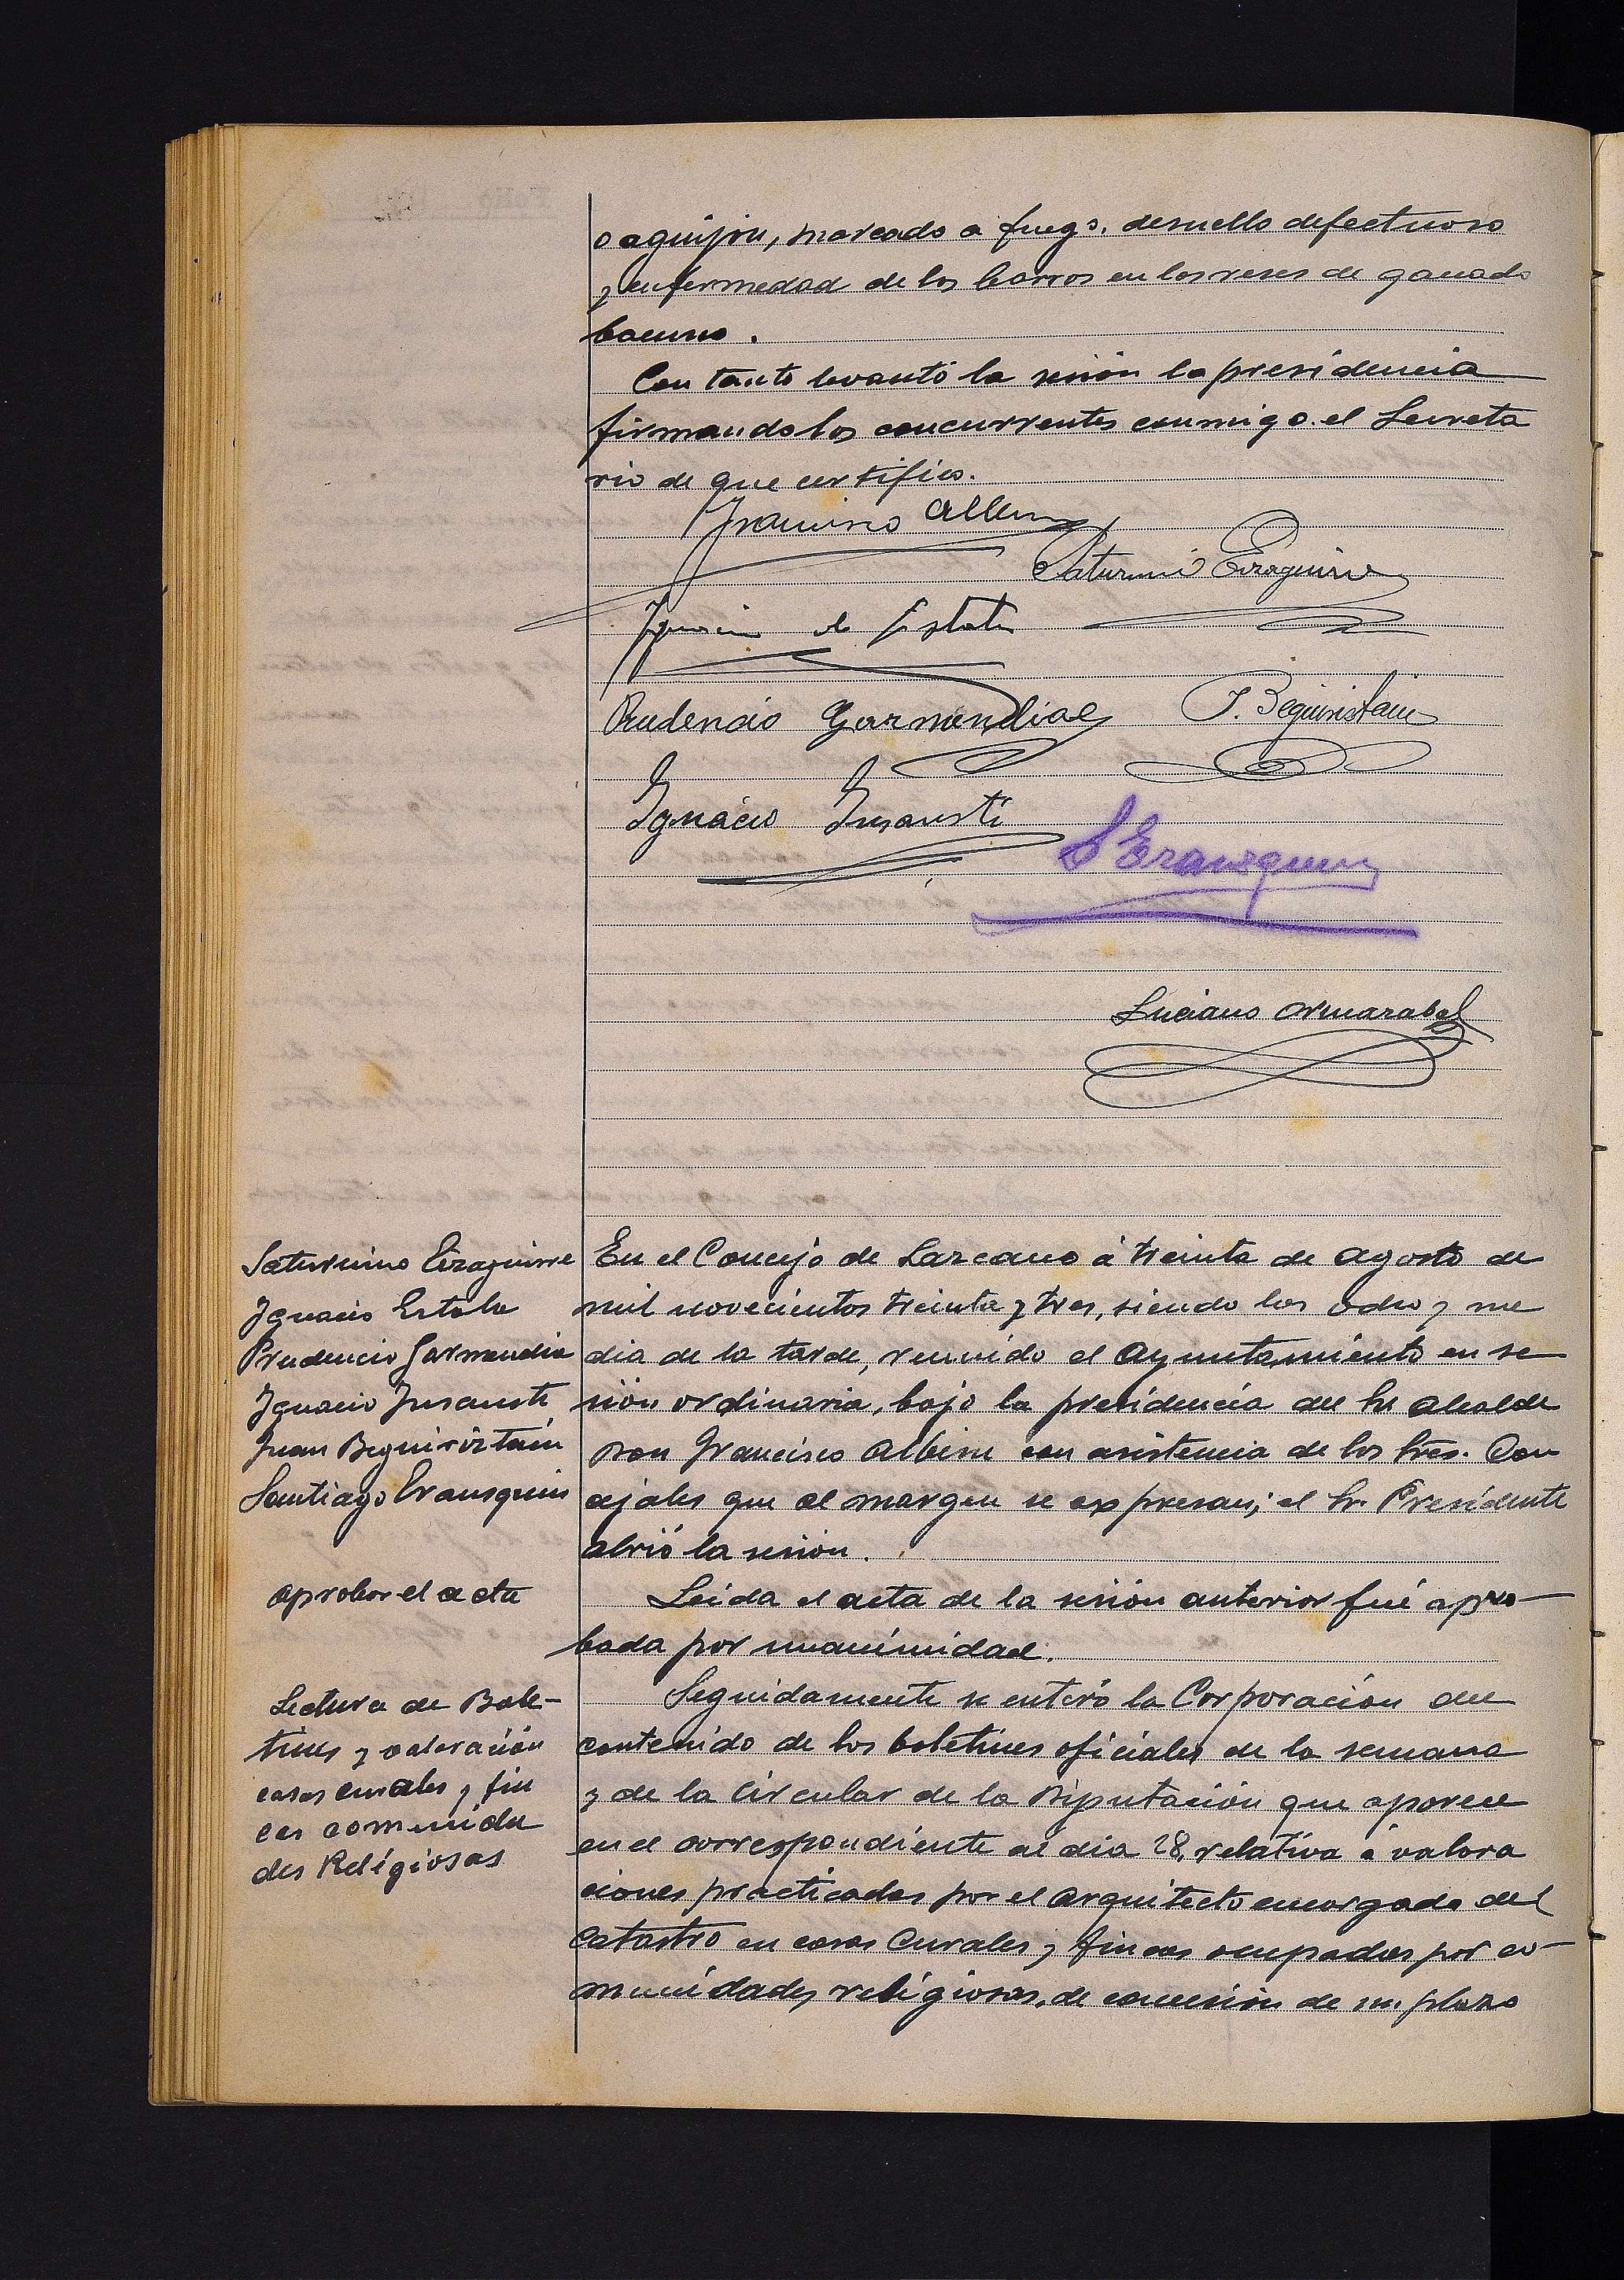 o aguijon, marcado a fuego, desuello defectuoso
y enfermedad de los barros en las reses de ganado
bacuno.
Con tanto levantó la sesión la presidencia
firmando los concurrentes conmigo el Secreta
rio de que certifico.
Francisco Albisu
Saturnino Eizaguirre
Ignacio de Estala
Prudencio Garmendia
J. Beguiristain
Ignacio Insausti
S Erausquin
Luciano Armarabal
Saturnino Eizaguirre
Ignacio Estala
Prudencio Garmendia
Ignacio Insausti
Juan Beguiristain
Santiago Erausquin
En el Concejo de Lazcano á treinta de agosto de
mil novecientos treinta y tres, siendo las ocho y me
dia de la tarde, reunido el Ayuntamiento en se
sión ordinaria, bajo la presidencia del Sr Alcalde
Don Francisco Albisu con asistencia de los Sres. Con
cejales que al margen se expresan; el Sr. Presidente
abrió la sesión.
aprobar el acta
Leida el acta de la sesión anterior fué apro-
bada por unanimidad.
Lectura de Bole-
tines y valoración
casas curales y fin
cas comunida
des Religiosas
Seguidamente se enteró la Corporación del
contenido de los boletines oficiales de la semana
y de la Circular de la Diputación que aparece
en el correspondiente al dia 28, relativa á valora
ciones practicadas por el Arquitecto encargado del
Catastro en casas Curales y fincas ocupadas por co-
munidades religiosas, de concesión de un plazo